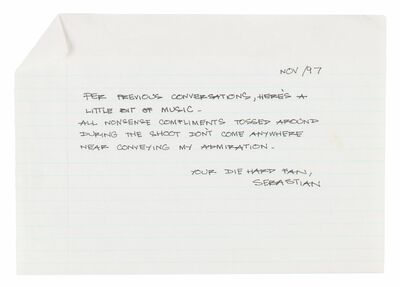 NOV /97
PER PREVIOUS CONVERSATIONS, HERE'S A
LITTLE BIT OF MUSIC -
ALL NONSENSE COMPLIMENTS TOSSED AROUND
DURING THE SHOOT DON'T COME ANYWHERE
NEAR CONVEYING MY ADMIRATION -
YOUR DIE HARD FAN,
SEBASTIAN